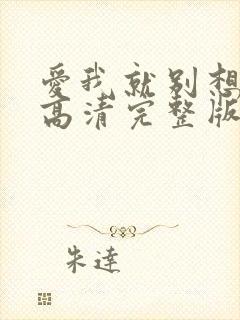 爱我就别想
高清完整版
朱達